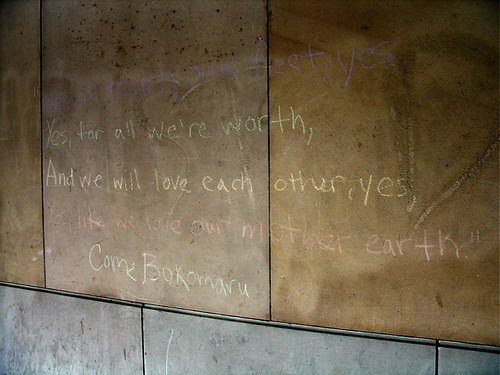 our feet, yes
Yes, for all we're worth,
And we will love each other, yes,
like we love our mother earth."
Come Bokomaru